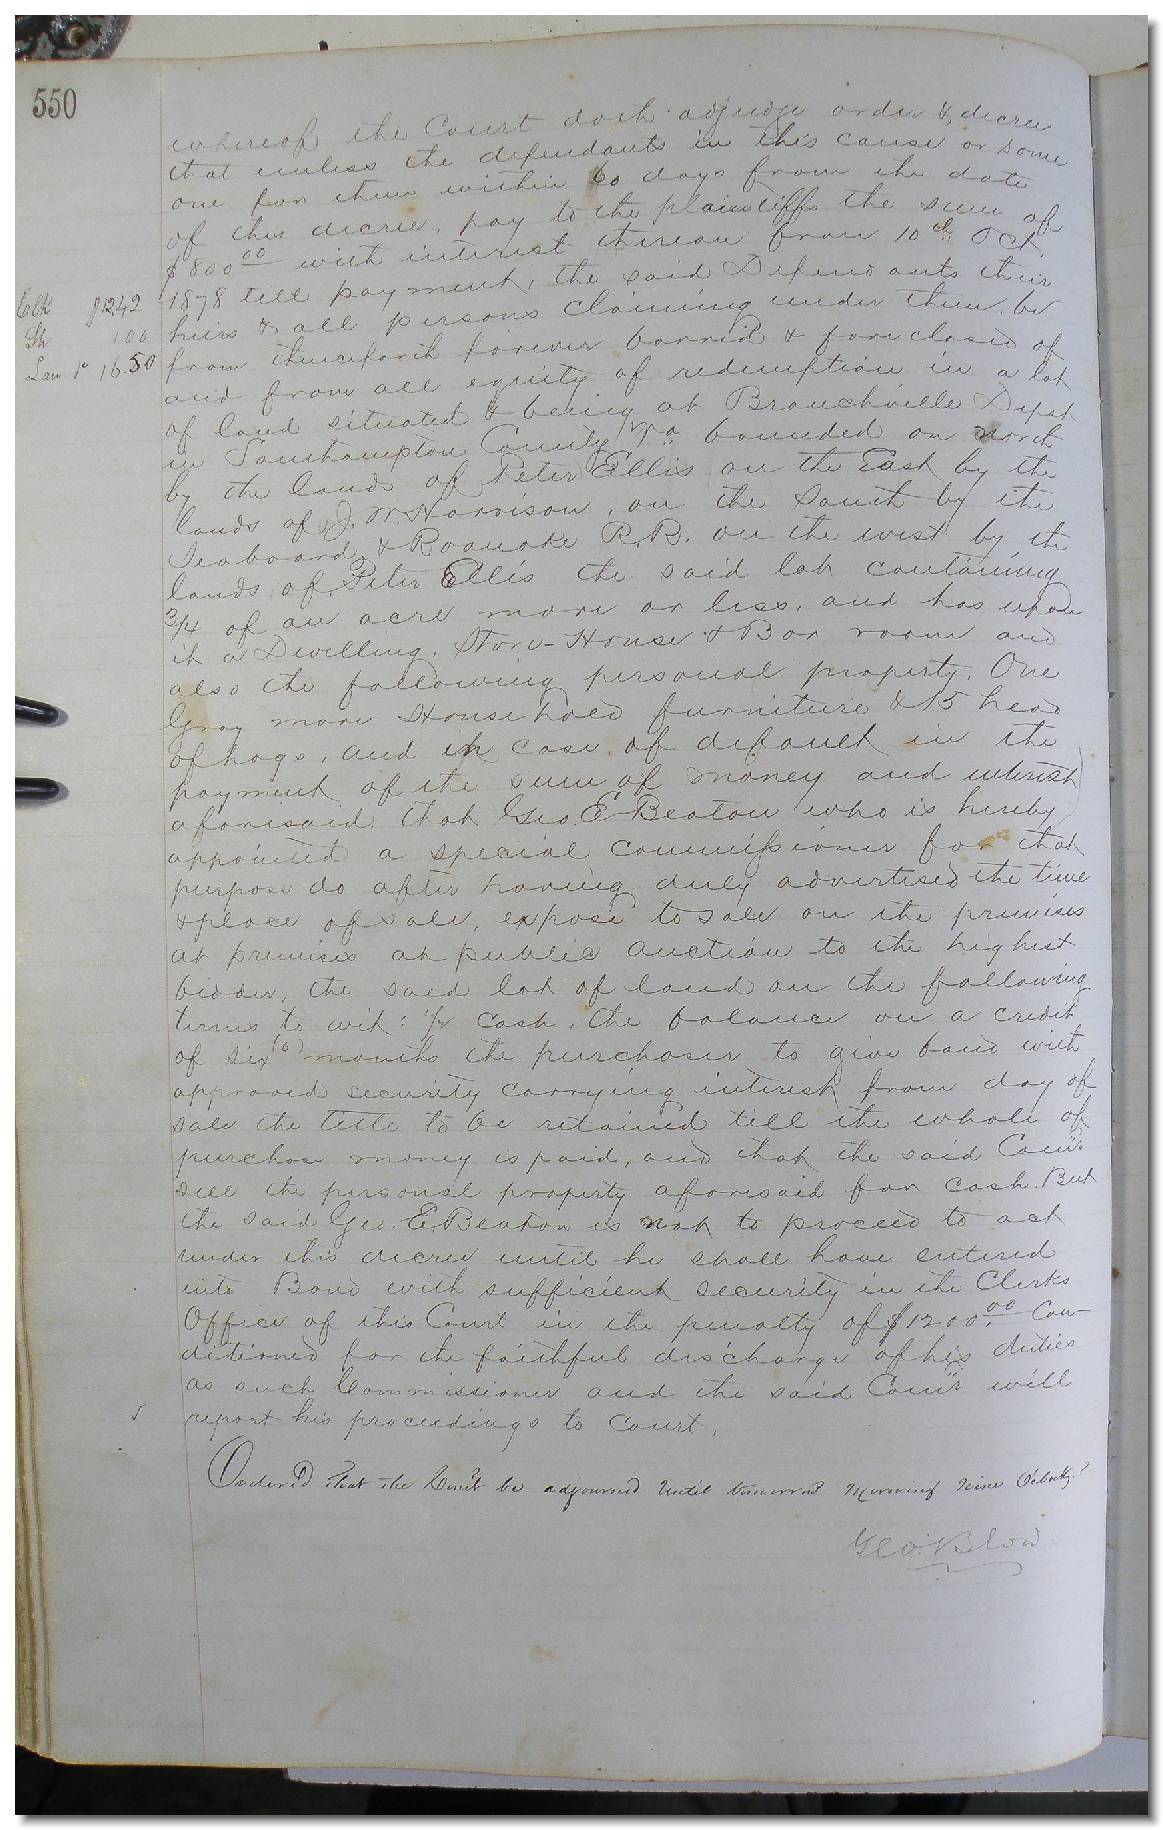 550
whereof the Court doth adjudge order & decree
that unless the defendants in this cause or some
one for them within 60 days from the date
of this decree, pay to the plaintiffs the sum of
$800.00 with interest thereon from 10th Oct
Clk $12.42
1878 till payment, the said Defendants their
Sh 1.00
heirs & all persons claiming under them be
16.50
from thenceforth forever barred & foreclosed of
and from all equity of redemption in a lot
of land situated & being at Branchville Depot
in Southampton County Va bounded on north
by the lands of Peter Ellis on the East by the
lands of J. W. Harrison, on the South by the
Seaboard & Roanoke R.R. on the west by the
lands of Peter Ellis the said lot containing
3/4 of an acre more or less, and has upon
it a Dwelling, Store-House & Bar room and
also the following personal property. One
Gray mare Household furniture & 15 head
of hogs, and in case of default in the
payment of the sum of money and interest
aforesaid that Geo. E. Beaton who is hereby
appointed a special commissioner for that
purpose do after having duly advertised the time
& place of sale, expose to sale on the premises
at premises at public auction to the highest
bidder, the said lot of land on the following
terms to wit: Cash, the balance on a credit
of six (6) months the purchaser to give bond with
approved security carrying interest from day of
sale the title to be retained till the whole of
purchase money is paid, and that the said Comr
sell the personal property aforesaid for cash. But
the said Geo. E. Beaton is not to proceed to act
under this decree until he shall have entered
into Bond with sufficient security in the Clerks
Office of this Court in the penalty of $1200.00 Con-
ditioned for the faithful discharge of his duties
as such Commissioner and the said Comr will
report his proceedings to Court.
Ordered that the Court be adjourned until tomorrow Morning Nine Oclock.
Geo. Blow